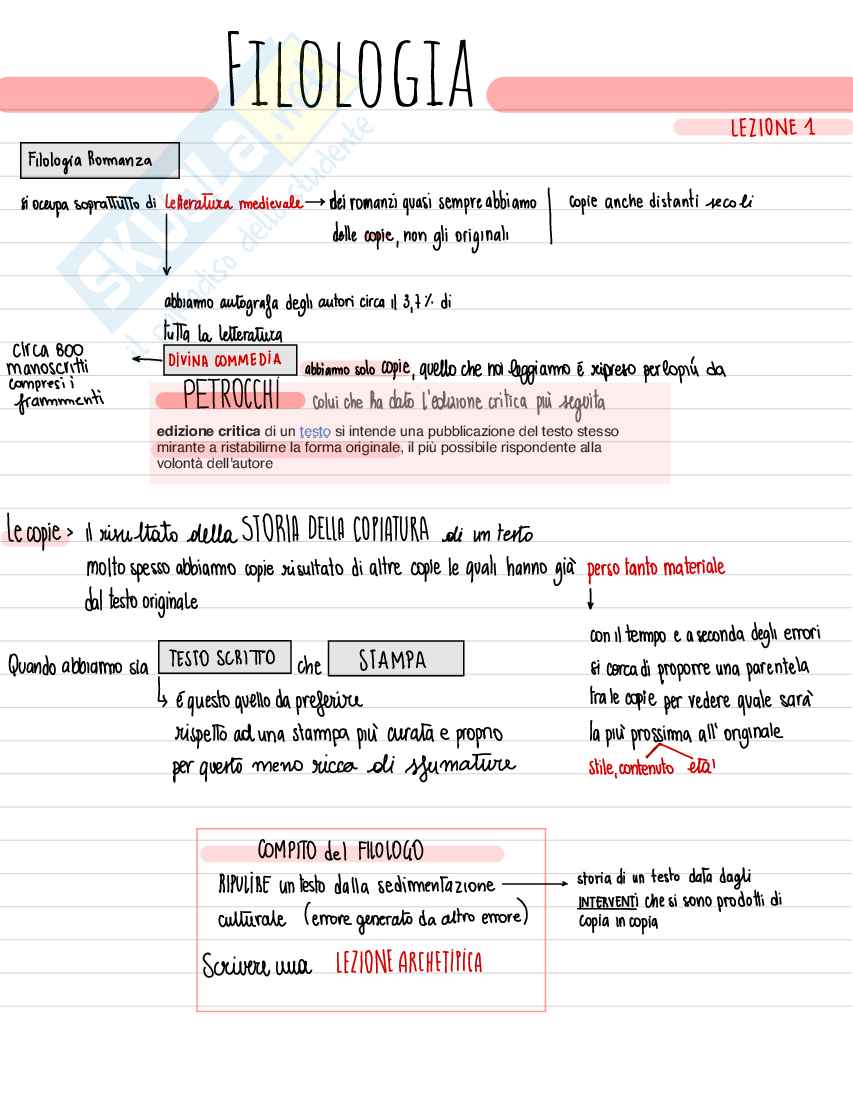 FILOLOGIA
LEZIONE 1
Filologia Romanza
si occupa soprattutto di letteratura medievale → dei romanzi quasi sempre abbiamo
delle copie, non gli originali
copie anche distanti secoli
abbiamo autografa degli autori circa il 3,7% di
tutta la letteratura
circa 800
manoscritti
compresi i
frammmenti
DIVINA COMMEDIA abbiamo solo copie, quello che noi leggiamo é ripreso perlopiú da
PETROCCHI colui che ha dato l'edizione critica più seguita
edizione critica di un testo si intende una pubblicazione del testo stesso
mirante a ristabilirne la forma originale, il più possibile rispondente alla
volontà dell'autore
Le copie > il risultato della STORIA DELLA COPIATURA di un testo
molto spesso abbiamo copie risultato di altre copie le quali hanno già perso tanto materiale
dal testo originale
con il tempo e a seconda degli errori
si cerca di proporre una parentela
tra le copie per vedere quale sarà
la più prossima all'originale
stile, contenuto età
Quando abbiamo sia TESTO SCRITTO che STAMPA
é questo quello da preferire
rispetto ad una stampa più curata e proprio
per questo meno ricca di sfumature
COMPITO del FILOLOGO
RIPULIRE un testo dalla sedimentazione
culturale (errore generato da altro errore)
storia di un testo data dagli
INTERVENTI che si sono prodotti di
copia in copia
Scrivere una LEZIONE ARCHETIPICA
SKUOLA.net
il paradiso dello studente